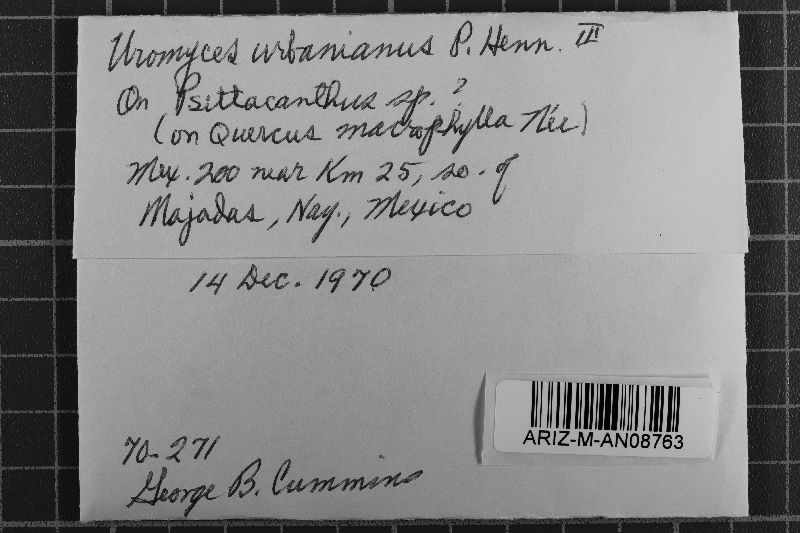 Uromyces urbanianus P. Henn. III
On Psittacanthus sp. ?
(on Quercus macrophylla Née)
Mex. 200 near Km 25, so. of
Majadas, Nay., Mexico
14 Dec. 1970
ARIZ-M-AN08763
70-271
George B. Cummins